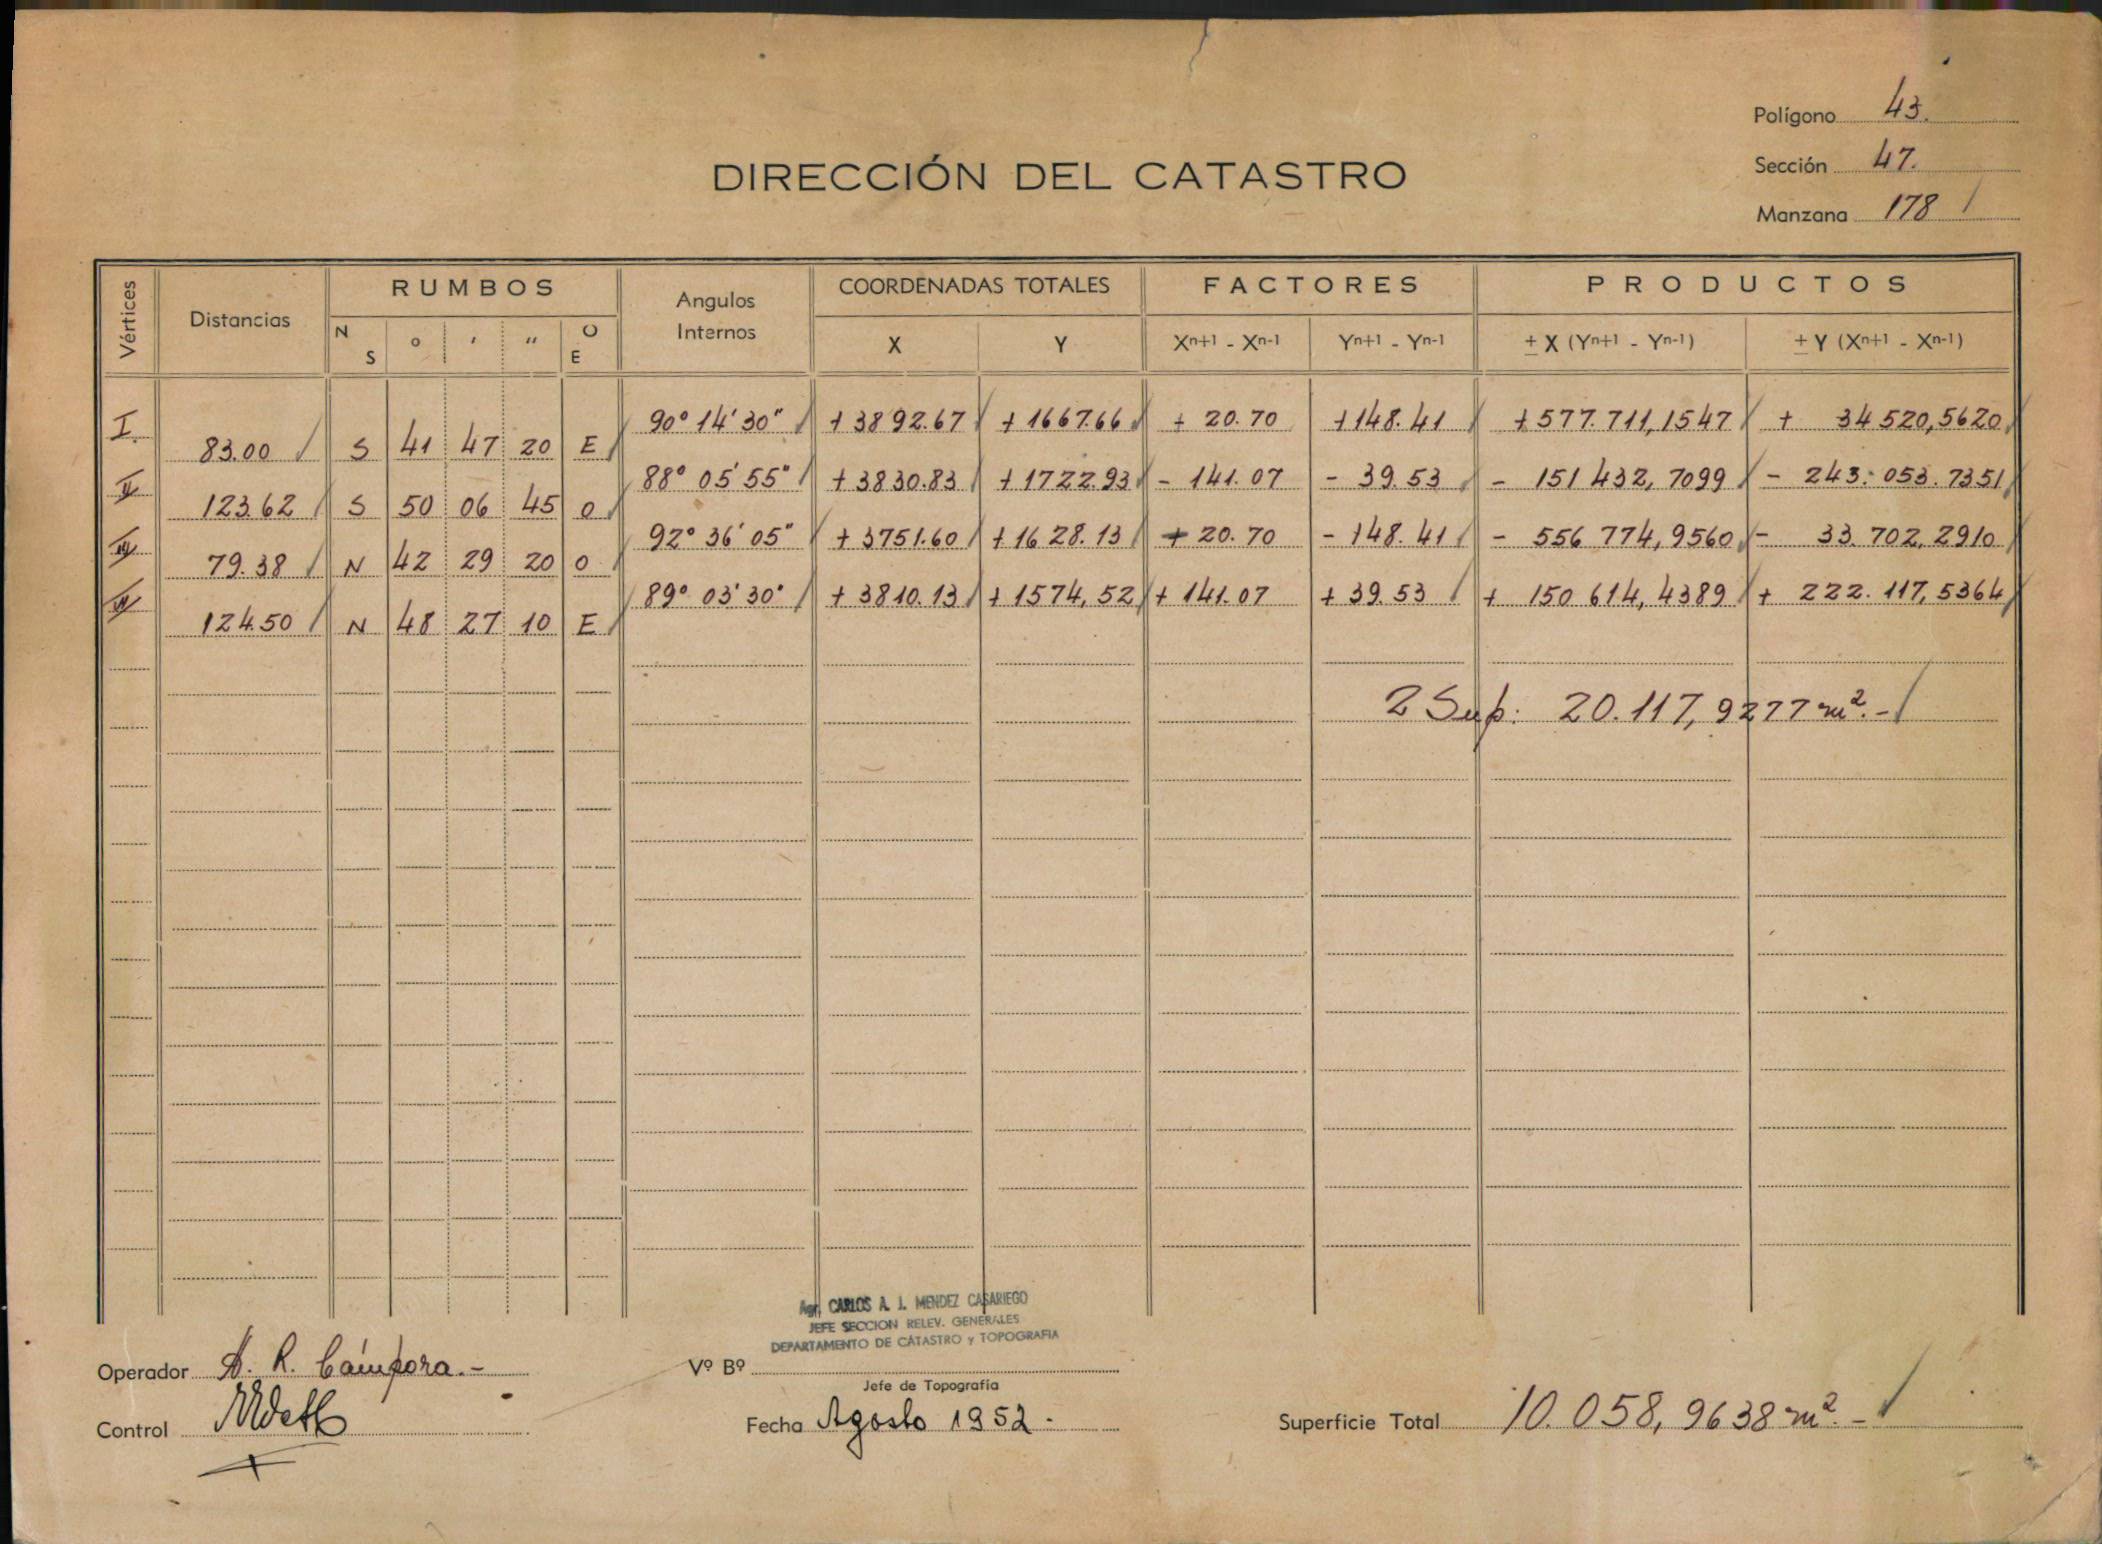 Polígono 43.
Sección 47.
Manzana 178 /
DIRECCIÓN DEL CATASTRO
Vértices Distancias RUMBOS Angulos Internos COORDENADAS TOTALES FACTORES PRODUCTOS
N S ° ' " O E X Y Xn+1 - Xn-1 Yn+1 - Yn-1 ± X (Yn+1 - Yn-1) ± Y (Xn+1 - Xn-1)
I. 90° 14' 30" + 3892.67 + 1667.66 + 20.70 + 148.41 + 577.711,1547 + 34 520,5620
83.00 S 41 47 20 E
II 88° 05' 55" + 3830.83 + 1722.93 - 141.07 - 39.53 - 151 432,7099 - 243.053.7351
123.62 S 50 06 45 O
III 92° 36' 05" + 3751.60 + 1628.13 + 20.70 - 148.41 - 556 774,9560 - 33.702,2910
79.38 N 42 29 20 O
IV 89° 03' 30" + 3810.13 + 1574,52 + 141.07 + 39.53 + 150 614,4389 + 222.117,5364
124.50 N 48 27 10 E
2 Sup: 20.117,9277 m².-
Agr. CARLOS A. J. MENDEZ CASARIEGO
JEFE SECCION RELEV. GENERALES
DEPARTAMENTO DE CATASTRO y TOPOGRAFIA
Operador A. R. Cámpora.-
Vº Bº
Jefe de Topografía
Control
Fecha Agosto 1952.
Superficie Total 10.058,9638 m².-